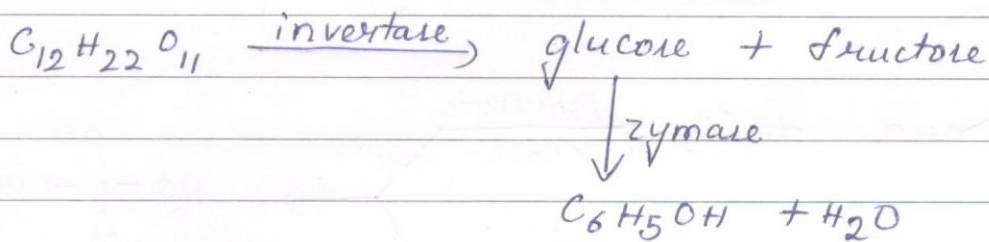 C₁₂H₂₂O₁₁ invertase → glucose + fructose
↓ zymase
C₆H₅OH + H₂O